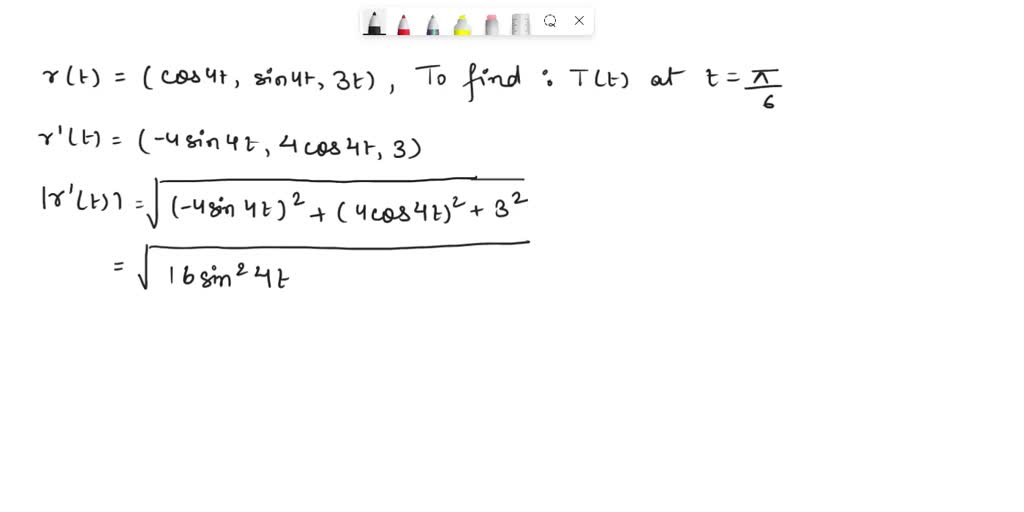 r(t) = (cos4t, sin4t, 3t), To find : T(t) at t = π/6
r'(t) = (-4sin4t, 4cos4t, 3)
|r'(t)| = √((-4sin4t)² + (4cos4t)² + 3²)
= √(16sin²4t